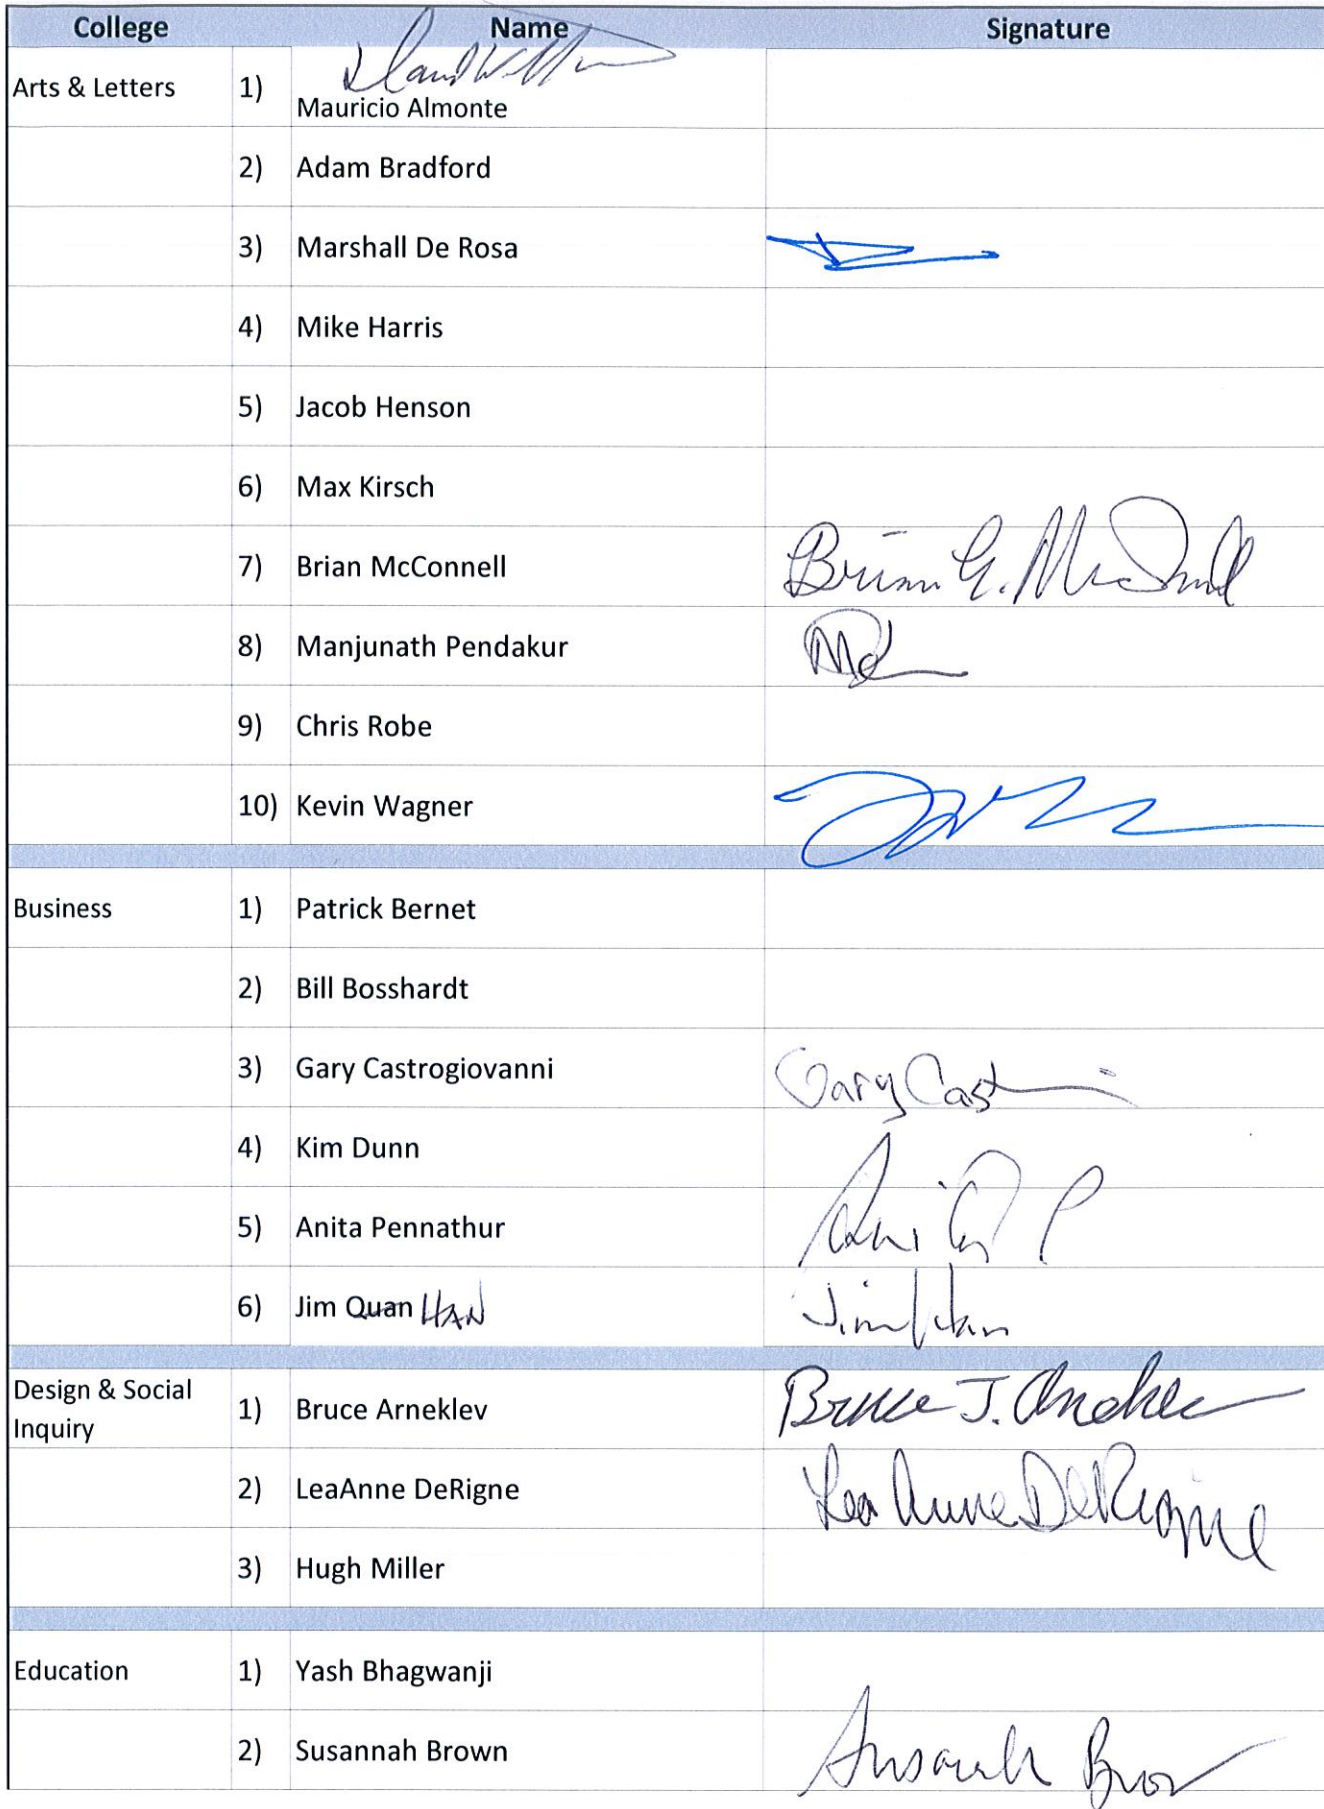 College Name Signature
Arts & Letters 1) Mauricio Almonte
2) Adam Bradford
3) Marshall De Rosa
4) Mike Harris
5) Jacob Henson
6) Max Kirsch
7) Brian McConnell Brian G.
8) Manjunath Pendakur
9) Chris Robe
10) Kevin Wagner
Business 1) Patrick Bernet
2) Bill Bosshardt
3) Gary Castrogiovanni Gary Cast
4) Kim Dunn
5) Anita Pennathur
6) Jim Quan HAN Jim Han
Design & Social
Inquiry 1) Bruce Arneklev Bruce J.
2) LeaAnne DeRigne LeaAnne DeRigne
3) Hugh Miller
Education 1) Yash Bhagwanji
2) Susannah Brown